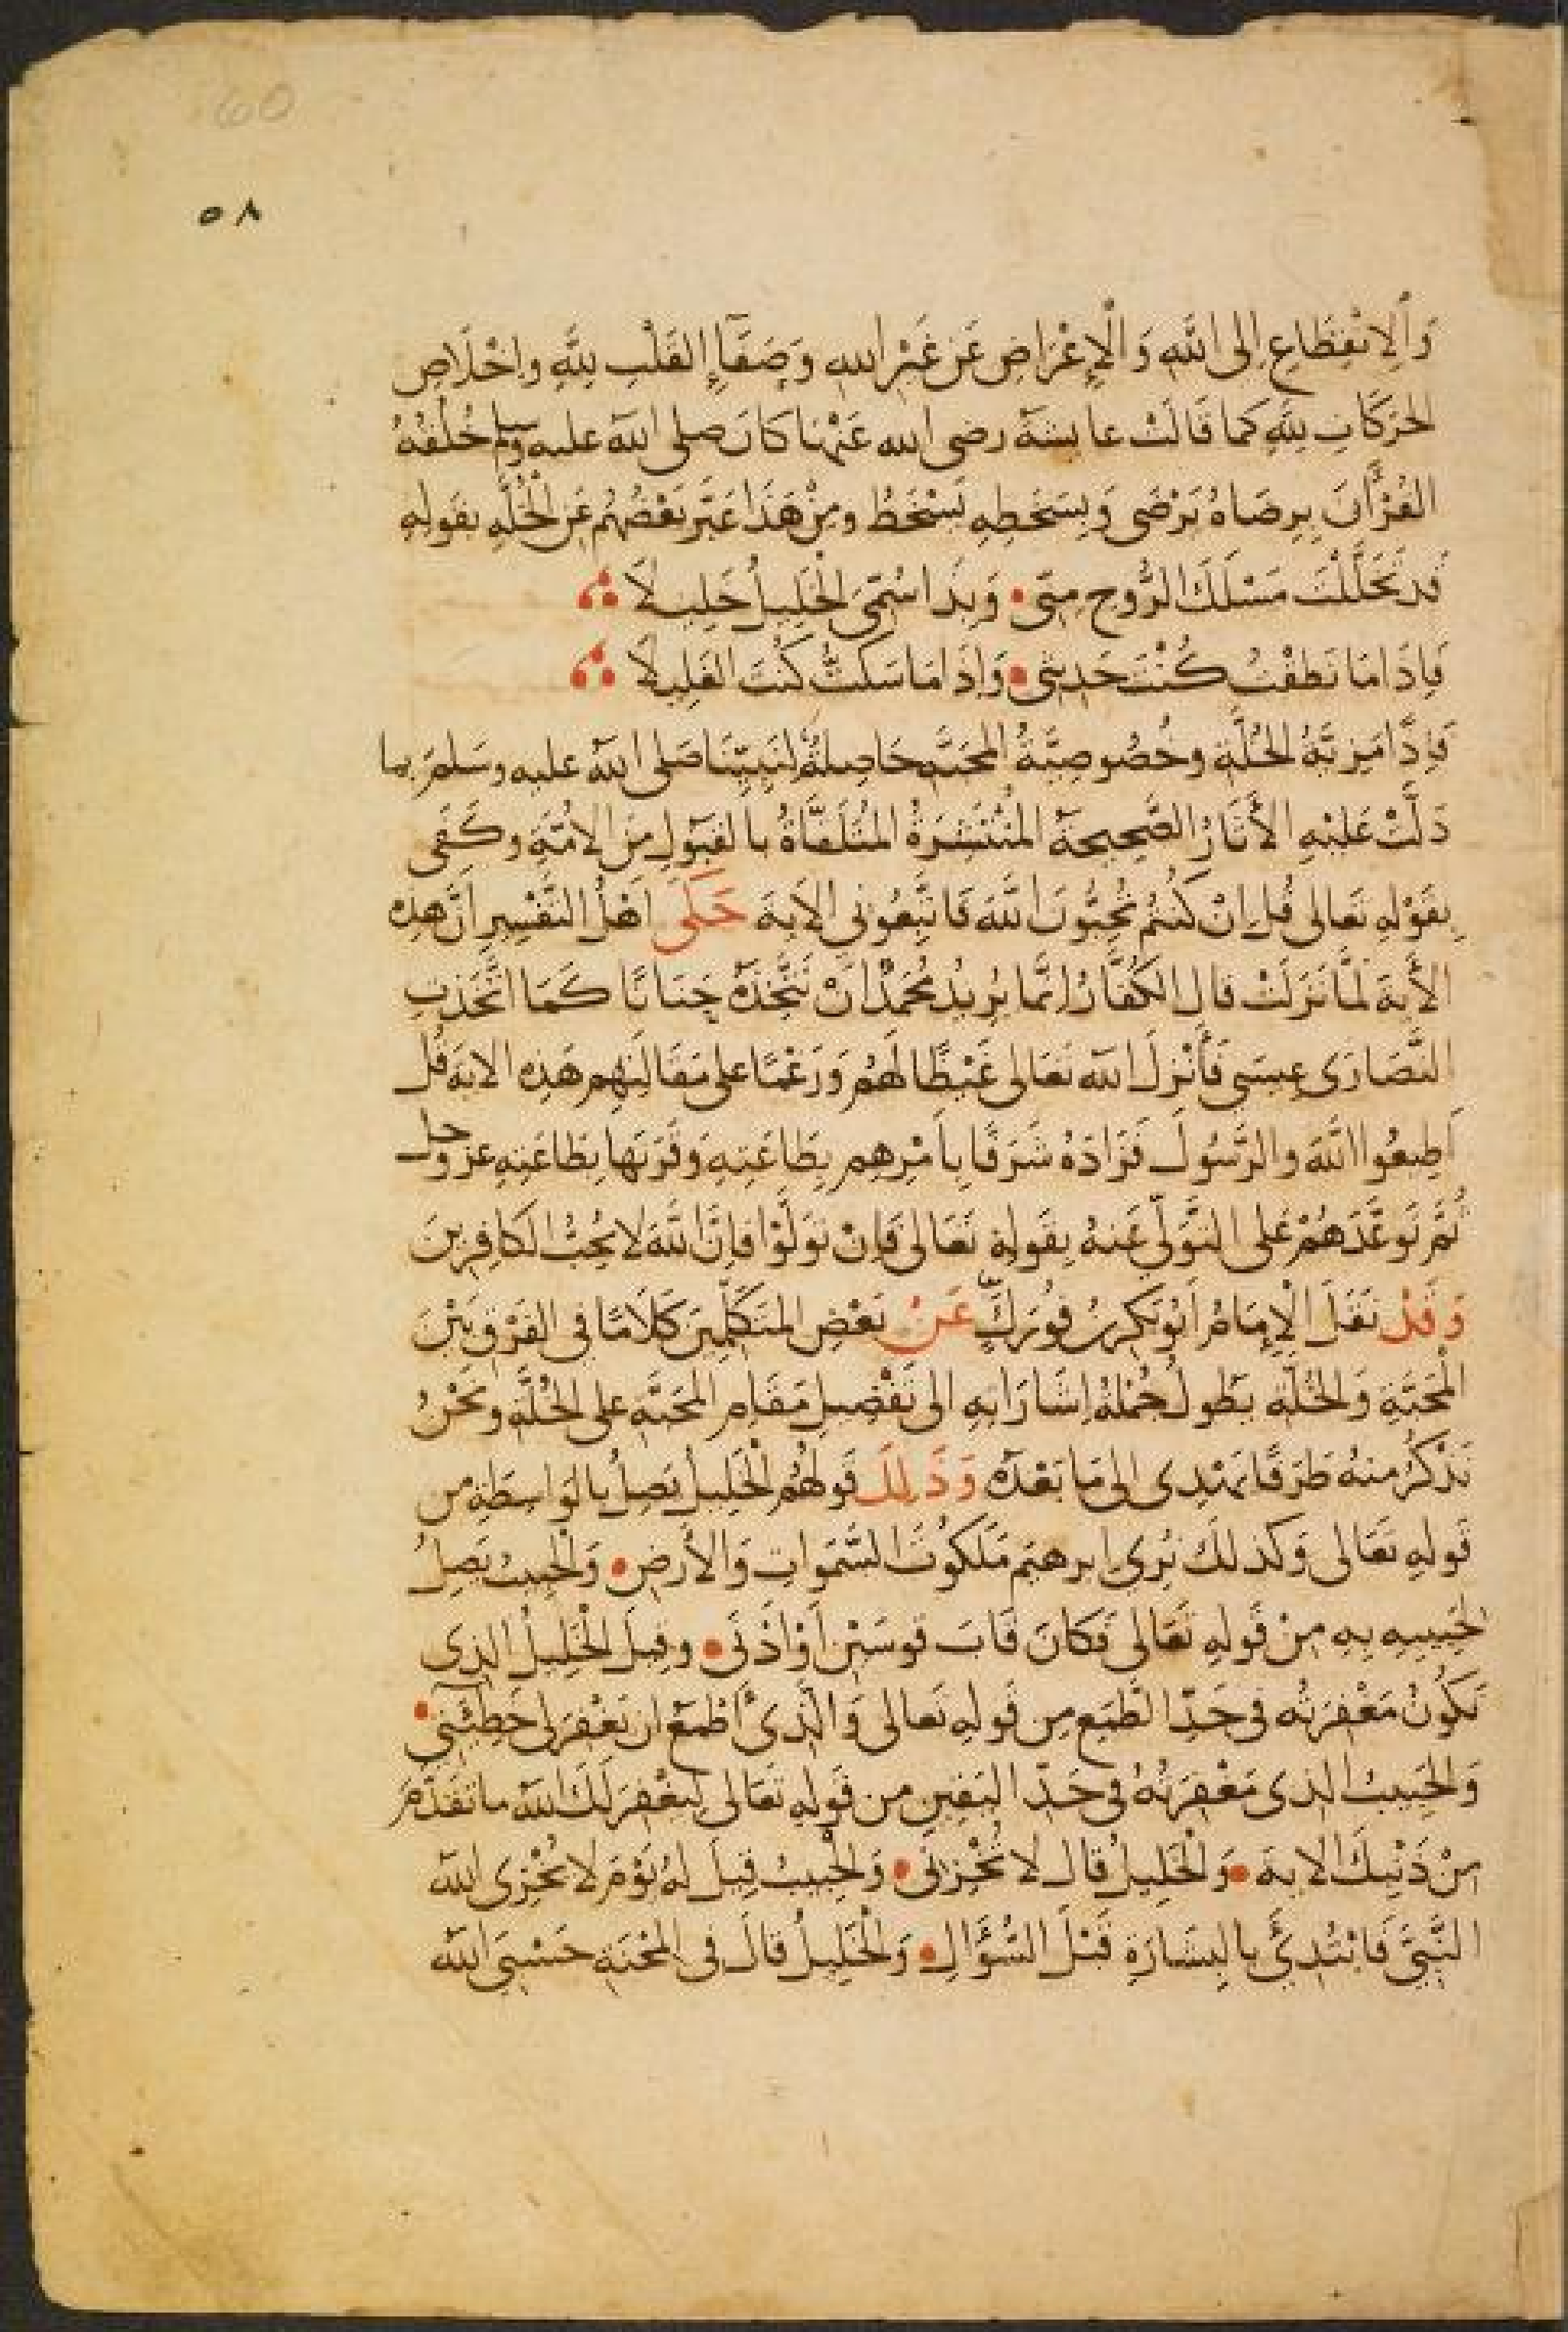 60
٥٨
وَالِانْقِطَاعِ إلى اللَّهِ وَالْإِعْرَاضِ عَنْ غَيْرِ اللهِ وَصَفَآءِ القَلْبِ لِلَّهِ وإخْلَاصِ
الحَرَكَاتِ لِلَّهِ كما قَالَتْ عايشة رضى الله عَنْها كَانَ صلى الله عليه وسلم خُلُقُهُ
القُرْأنَ بِرِضَاهُ يَرْضَى وَبِسَخَطِهِ يَسْخَطُ ومِنْ هَذَا عَبَّرَ بَعْضُهُم عَنِ الْخُلَّةِ بقَولِهِ
قد تَخَلَّلْتَ مَسْلَكَ الرُّوحِ مِنّى • وَبِذَا سُمِّىَ الْخَلِيلُ خَلِيلَا
فَإذَا مَا نَطَقْتُ كُنْتَ حَدِيثى • وَإِذَا مَا سَكَتُّ كُنْتَ الغَلِيلَا
فَإِذًا مَزِيَّةُ الخُلَّةِ وخُصُوصِيَّةُ المحَبَّةِ حَاصِلَةٌ لِنَبِيِّنَا صَلى اللهُ عليه وسَلم بما
دَلَّتْ عَلَيْهِ الأثَارُ الصَّحِيحَةُ المنْتَشِرَةُ المُتَلَقَّاةُ بالقَبُولِ مِنَ الامَّةِ وكَفَى
بِقَوْلِهِ تَعَالى قُل إنْ كُنْتُم تُحِبُّونَ اللَّهَ فَاتَّبِعُونى الآيةَ حَكَى اَهْلُ التَّفْسِيرِ انَّ هذه
الأيةَ لمَّا نَزَلَتْ قال الكُفَّارُ إنَّما يُرِيدُ مُحَمَّدٌ أنْ نَتَّخِذَهُ حَنَانًا كَمَا اتَّخَذَتِ
النَّصَارَى عِيسَى فَأنْزلَ الله تعَالى غَيْظًا لَهُم وَرَغْمًا على مَقَالَتِهِم هَذِه الاية قُل
اَطِيعُوا اللَّهَ والرَّسُولَ فَزَادَهُ شَرَفًا بِاَمْرِهِم بِطَاعَتِهِ وَقَرَنَها بِطَاعَتِهِ عز وجل
ثُمَّ تَوَعَّدَهُمْ عَلى التَّوَلّى عَنهُ بِقَولِهِ تَعَالى فَإِنْ تَوَلَّوْا فإنَّ اللَّهَ لا يُحِبُّ الكَافِرِينَ
وَقَدْ نَقَلَ الْإِمَامُ اَبُو بَكرِ بنُ فُورَكٍ عَنْ بَعْضِ المتَكَلِّمِينَ كَلَامًا فى الفَرْقِ بَيْنَ
الْمَحَبَّةِ وَالخُلَّةِ يَطُولُ جُمْلَةُ إشَارَاتِهِ الى تَفْضِيلِ مَقَامِ المَحَبَّةِ على الخُلَّةِ ونَحْنُ
نَذْكُرُ منهُ طَرَفًا يَهْدِى إلى مَا بَعْدَهُ وَذَلِكَ قَولهُم الْخَلِيلُ يَصِلُ بالوَاسِطَةِ من
قَولِهِ تعَالى وَكَذلكَ نُرِى ابرهيم مَلَكُوتَ السَّمَواتِ وَالأرْضِ • وَالْحَبِيبُ يَصِلُ
لحَبِيبِه بِهِ مِنْ قَولِهِ تَعَالى فَكَانَ قَابَ قَوسَيْنِ أَوْ اَدْنَى • وقِيلَ الخَلِيلُ الذى
تَكُونُ مَغْفِرَتُه فى حَدِّ الطَّمَعِ مِن قَولِهِ تَعالى وَالَّذِى أَطْمَعُ ان يَغْفِرَ لى خَطِيئَتِى •
وَالحَبِيبُ الذى مَغْفِرَتُهُ فى حَدِّ اليَقِينِ مِن قَولِهِ تَعَالى لِيَغْفِرَ لَكَ اللهُ ما تَقَدَّمَ
مِنْ ذَنْبِكَ الايةَ • وَالْخَلِيلُ قال لا تُخْزِنى • وَالحَبِيبُ قِيلَ لهُ يَوْمَ لا يُخْزِى اللهُ
النَّبِىَّ فَابْتُدِئَ بالبِشَارَةِ قَبْلَ السُّؤَالِ • وَالْخَلِيلُ قالَ فى المِحْنَةِ حَسْبِىَ اللهُ